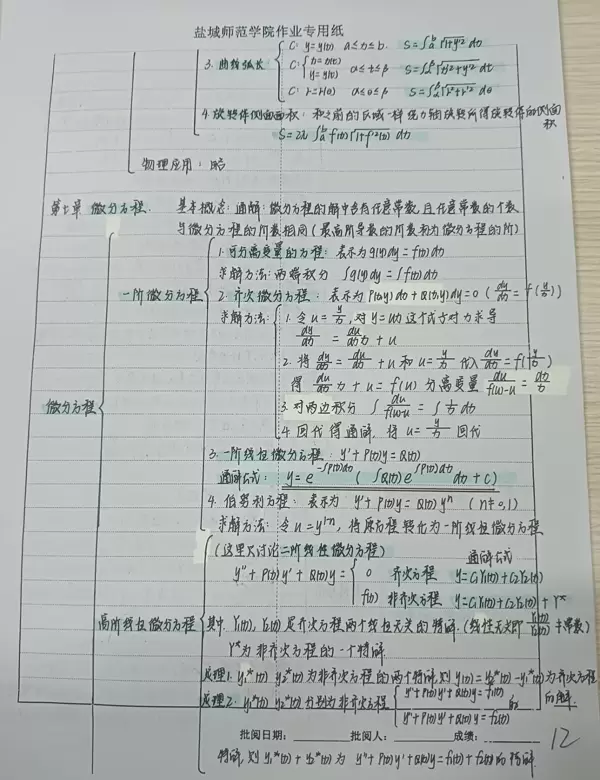 盐城师范学院作业专用纸
3. 曲线弧长 { C: y=y(x) a≤x≤b. S=∫ₐᵇ√(1+y'²) dx
C: { x=x(t) y=y(t) α≤t≤β S=∫√(x'²+y'²) dt
C: r=r(θ) α≤θ≤β S=∫√(r²+r'²) dθ
4. 旋转体侧面面积: 和之前的区域一样绕x轴旋转所得旋转体的侧面积
S=2π∫ₐᵇ f(x)√(1+f'²(x)) dx
物理应用: 略
第七章 微分方程. 基本概念: 通解: 微分方程的解中含有任意常数, 且任意常数的个数
与微分方程的阶数相同 (最高阶导数的阶数称为微分方程的阶)
1. 可分离变量的方程: 表示为 g(y)dy=f(x)dx
求解方法: 两端积分 ∫g(y)dy=∫f(x)dx
一阶微分方程 2. 齐次微分方程: 表示为 P(x,y)dx+Q(x,y)dy=0 (dy/dx=f(y/x))
求解方法: 1. 令u=y/x, 对y=ux这个式子对x求导
dy/dx = du/dx x + u
2. 将 dy/dx = du/dx x + u 和 u=y/x 代入 dy/dx=f(y/x)
得 du/dx x + u = f(u) 分离变量 du/(f(u)-u) = dx/x
微分方程 3. 对两边积分 ∫du/(f(u)-u) = ∫1/x dx
4. 回代得通解, 将 u=y/x 回代
3. 一阶线性微分方程: y'+P(x)y=Q(x)
通解公式: y=e^(-∫P(x)dx) (∫Q(x)e^(∫P(x)dx) dx + C)
4. 伯努利方程: 表示为 y'+P(x)y=Q(x)yⁿ (n≠0,1)
求解方法: 令u=y^(1-n), 将原方程转化为一阶线性微分方程
(这里只讨论二阶线性微分方程) 通解公式
y''+P(x)y'+Q(x)y= { 0 齐次方程 y=C₁Y₁(x)+C₂Y₂(x)
f(x) 非齐次方程 y=C₁Y₁(x)+C₂Y₂(x)+Y*
高阶线性微分方程 其中. Y₁(x), Y₂(x)是齐次方程两个线性无关的特解. (线性无关即 Y₁(x)/Y₂(x) ≠常数)
Y*为非齐次方程的一个特解
定理1. y₁*(x) y₂*(x)为非齐次方程的两个特解, 则 y(x)=y₂*(x)-y₁*(x)为齐次方程的解.
定理2. y₁*(x) y₂*(x)分别为非齐次方程 { y''+P(x)y'+Q(x)y=f₁(x) y''+P(x)y'+Q(x)y=f₂(x) 的
批阅日期: 批阅人: 成绩: 12
特解, 则 y₁*(x)+y₂*(x)为 y''+P(x)y'+Q(x)y=f₁(x)+f₂(x)的特解.